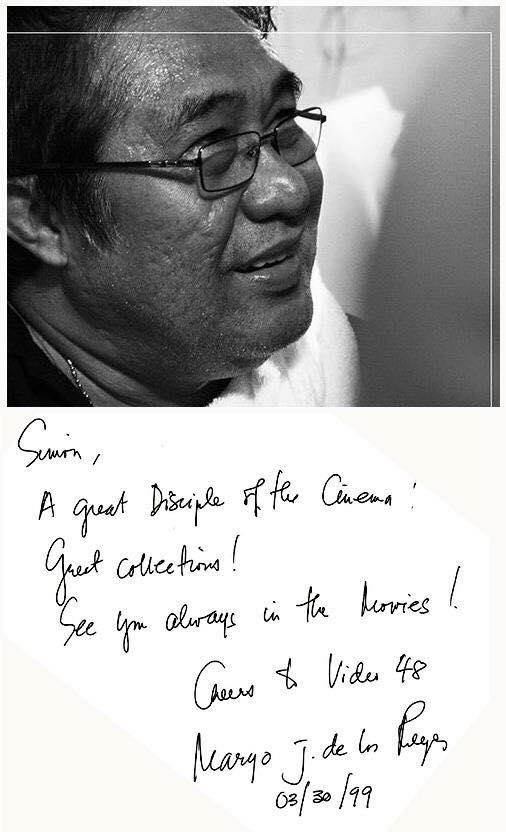 Simon,
A great Disciple of the Cinema!
Great collections!
See you always in the Movies!
Cheers to Video 48
Maryo J. de los Reyes
03/30/99